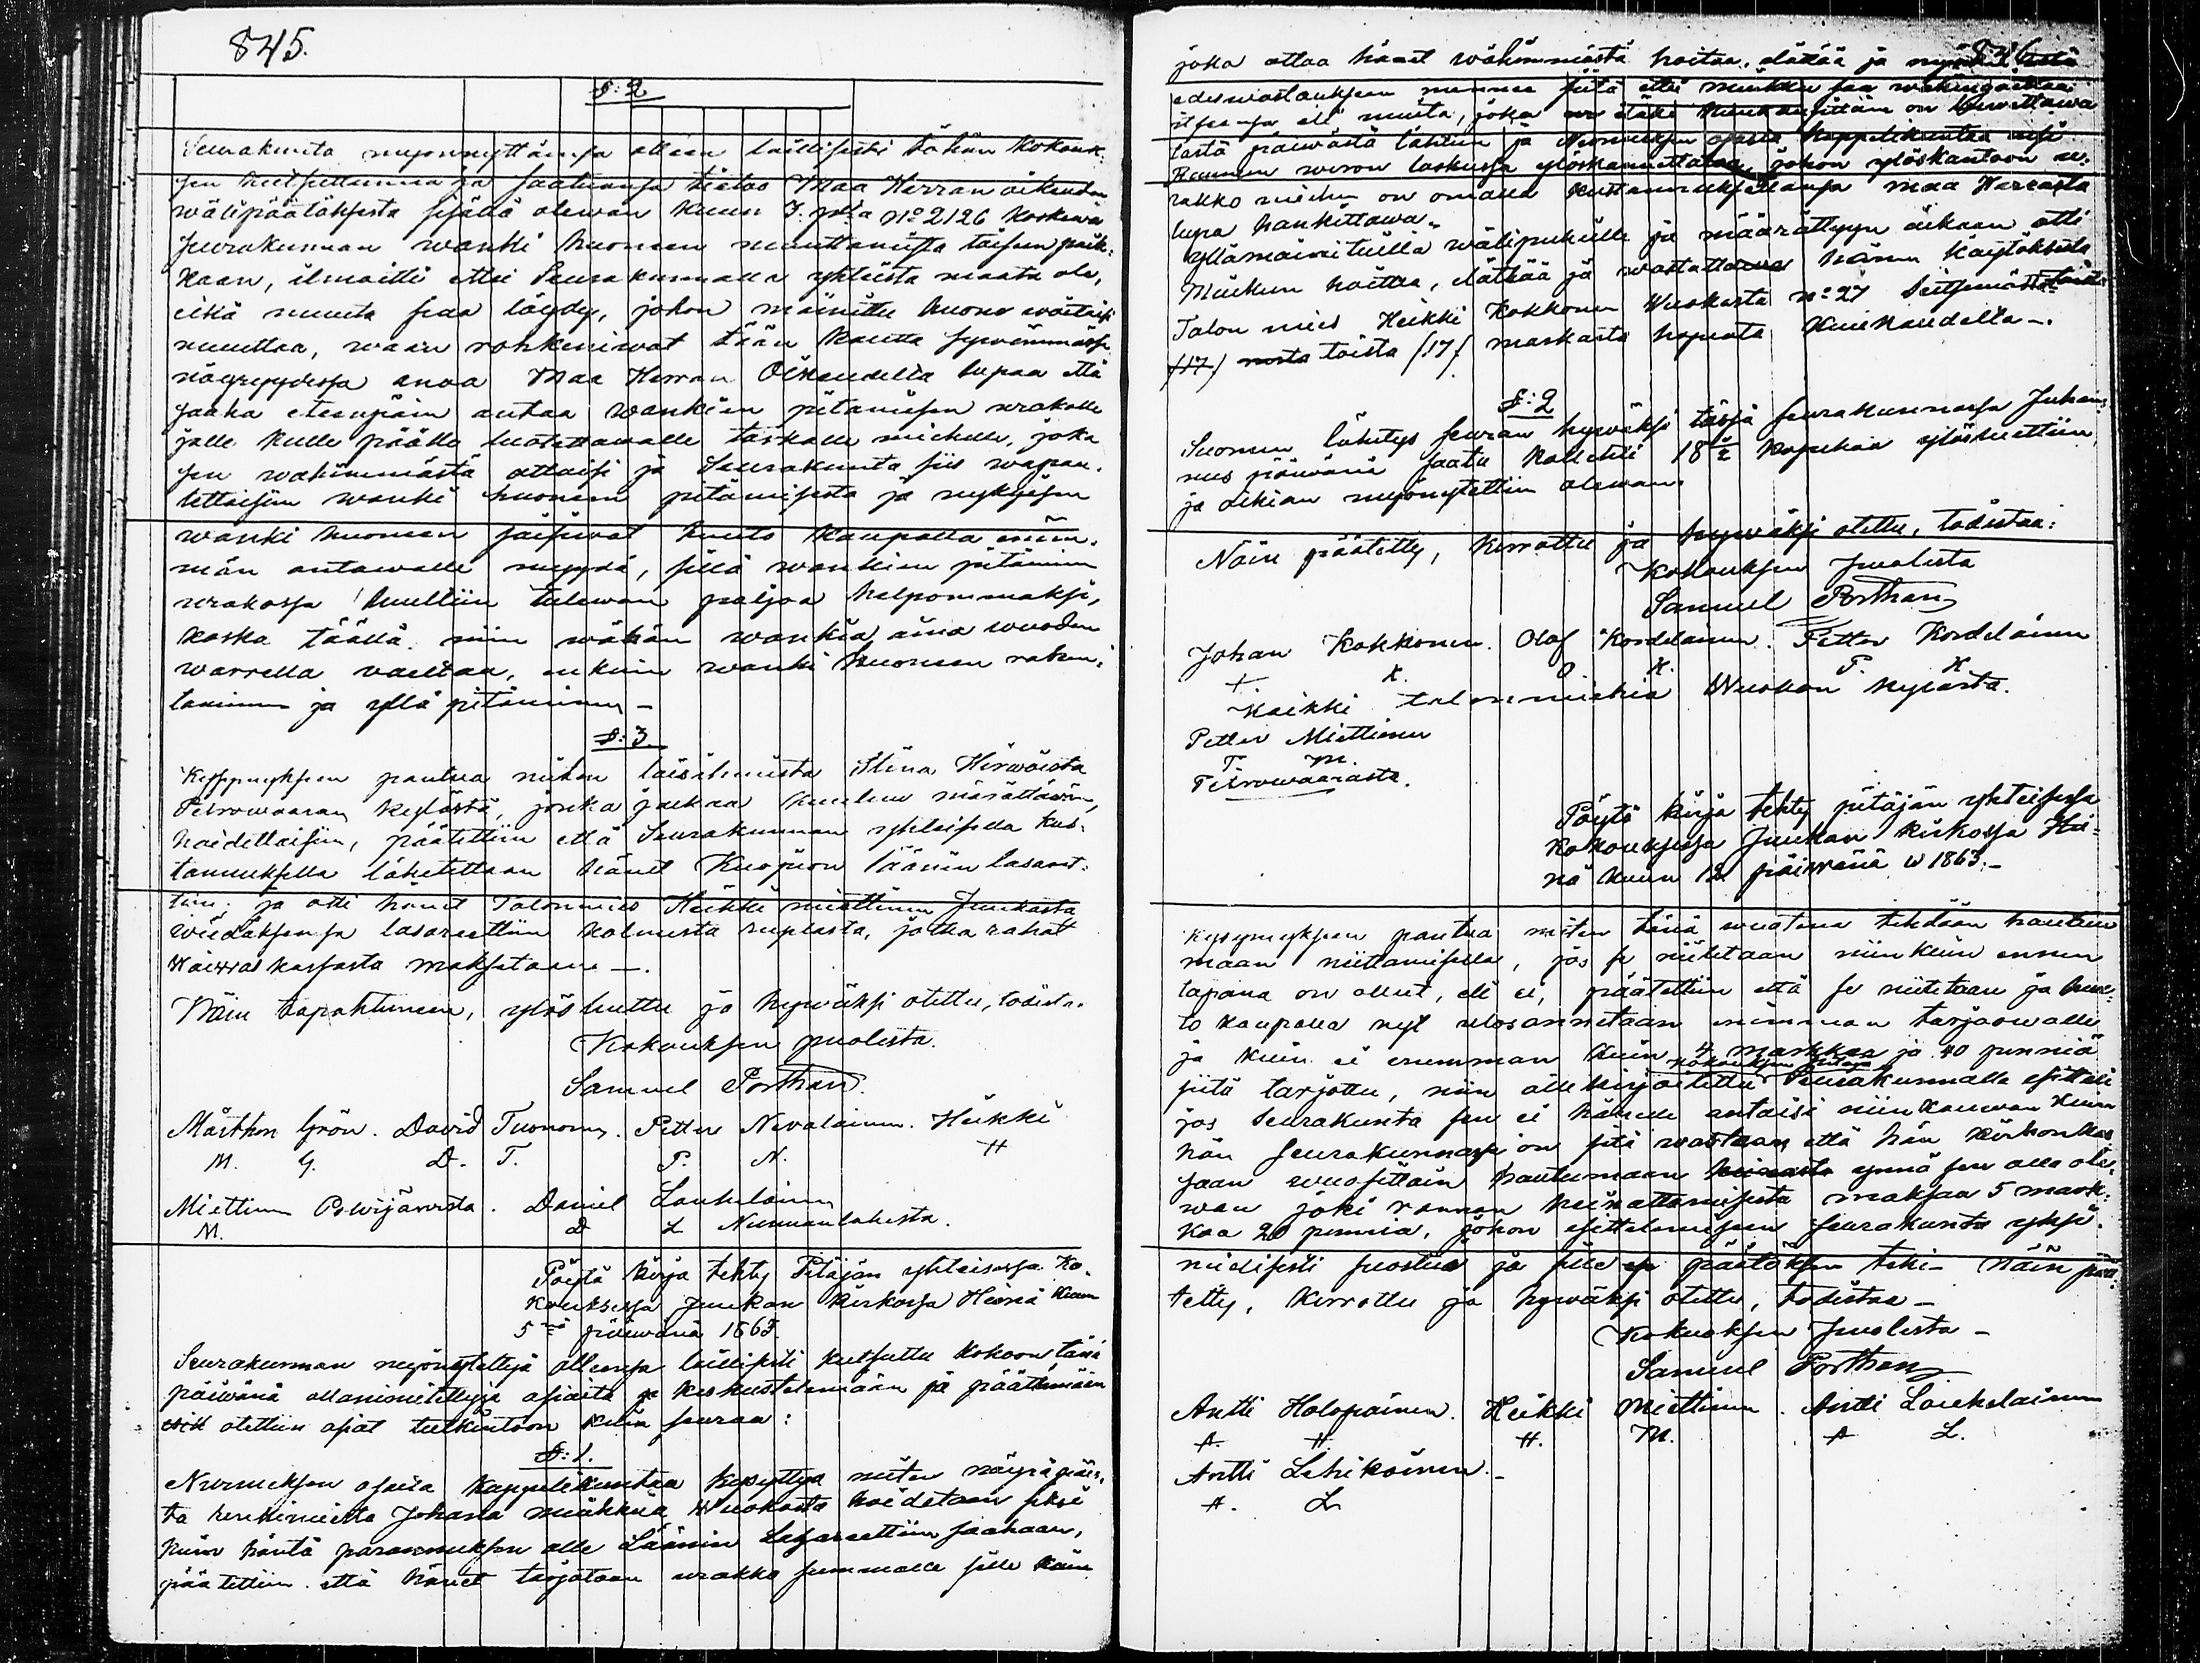 845.
§: 2
Seurakunta myönnyttämsä olleen laillisesti tähän kokouk-
sen kutsuttuna ja saatuansa tietoo Maa Herran oikeuden
wälipäätöksestä sisällä olewan kuun 3. p:ltä No 2126 koskewa
seurakunnan wanki huoneen muuttamista toiseen paik-
kaan, ilmoitti ettei Seurakunnalla yhteistä maata ole,
eikä muuta saa löydy, johon mainittu huone woitaisi
muuttaa, waan rohkeniwat tään kautta sywimmässä
nöyryydessä anoa Maa Herran Oikeudelta lupaa että
saaha eteenpäin antaa wankien pitämisen urakalle
jolle kulle päälle luotettawalle tarkalle miehelle, joka
sen wähimmästä ottaisi ja Seurakunta siis wapau-
tettaisiin wanki huoneen pitämisestä ja nykyisen
wanki huoneen saisiwat huuto kaupalla enim-
män antawalle myydä, sillä wankien pitäminen
urakassa luultiin tulewan paljoa helpommaksi,
koska täällä niin wähän wankia aina wuoden
warrella waeltaa, enkuin wanki huoneen raken-
taminen ja yllä pitäminen –
§: 3
Kysymykseen pantua miten loisihmistä Stina Hirwöistä
Petrowaaran kylästä, jonka jalkaa kuuluu mätättäwän,
hoidettaisiin, päätettiin että Seurakunnan yhteisellä kus-
tannuksella lähetettään hänet Kuopion läänin lasaret-
tiin; ja otti hänet Talonmies Heikki Miettinen Juukasta
wiedäksensä lasarettiin kolmesta ruplasta, jotka rahat
Waiwais kassasta maksetaan –.
Näin tapahtuneen, ylös luettu ja hywäksi otettu, todista.
Kokouksen puolesta.
Samuel Porthan.
Mårthen Grön. David Tuononen. Petter Nevalainen. Heikki
M. G. D. T. P. N. H
Miettinen Polwijärwestä. Daniel Laukelainen
M. D L Nunnanlahesta.
Pöytä kirja tehty Pitäjän yhteisessä Ko-
kouksessa Juukan kirkossa Heinä kuun
5nä päiwänä 1863.
Seurakunnan myönytettyä ollensa laillisesti kutsuttu kokoon tänä
päiwänä allanimitettyjä asioita keskustelemaan ja päättämään
otettiin asiat tutkintoon kuin seuraa:
§: 1.
Nurmeksen osasta kappelikuntaa kysyttyä miten nöyräpäis-
tä renkimiestä Johania Wuokosta hoidetaan siksi
kuin häntä parannuksen alle Läänin Lasarettiin saahaan,
päätettiin että hänet tarjotaan urakka summalle sille kuin
846
joka ottaa hänet wähimmästä hoitaa, elättää ja
edeswastauksen siitä ettei
eli muita, joka
tästä päiwästä lähtien ja Nurmeksen osasta kappelikuntaa
ruunun weron laskussa ylöskannettakaa, johon ylöskantoon u-
rakko miehen on omalla kustannuksellansa maa Herralta
lupa hankittawa.
Yllämainituilla wälipuheilla ja määrättyyn aikaan otti
hoittaa, elättää ja wastattawa hänen käytöksestä
Talon mies Heikki Kokkonen Wuokosta No 27 Seitsemästä toista
(17) toista (17) markasta hopeata kuukaudelta –.
§: 2
Suomen lähetys seuran hywäksi tässä seurakunnassa Juhan-
nus päiwänä saatu kollehti 18 ½ kopekaa ylösluettiin,
ja oikian myönytettiin olewan.
Näin päätetty, kerrottu ja hywäksi otettu, todistaa:
Kokouksen Puolesta
Samuel Porthan
Johan Kokkonen. Olof Kordelainen. Petter Kordelainen
K. O K. P. K
Kaikki talonmiehiä Wuokon kylästä.
Petter Miettinen
P. M.
Petrowaarasta.
Pöytä kirja tehty pitäjän yhteisessä
Kokouksessa Juukan kirkossa Hei-
nä kuun 12 päiwänä w 1863.–
Kysymykseen pantua miten tänä wuotena tehdään hautaus
maan niittämisellä, jos se niitetään niinkuin ennen
tapana on ollut, eli ei, päätettiin että se niitetään ja huu-
to kaupalla nyt ulosannetaan enimmän tarjoawalle
ja kuin ei enemmän kuin 4 markkaa ja 40 penniä
siitä tarjottu, niin allekirjoitettu kokouksen pitäjä Seurakunnalle esitteli
jos Seurakunta sen ei hänelle antaisi niinkauwan kuin
hän seurakunnassa on sitä wastaan, että hän kirkon kas-
saan wuosittain hautamaan ynnä sen alla ole-
wan joki rannan heinottamisesta maksaa 5 mark-
kaa 20 penniä, johon esittelemiseen seurakunta yksi-
mielisesti suostui ja sille päätöksen teki – Näin pää-
tetty, kerrottu ja hywäksi otettu, todistaa –
Kokouksen Puolesta –
Samuel Porthan
Antti Holopainen. Heikki Miettinen. Antti Laukelainen
A. H. H. M. A L.
Antti Lehikoinen.–
A. L